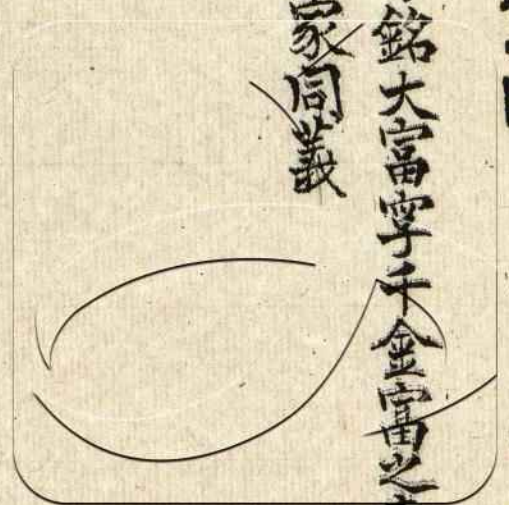 銘大富寧千金富之
家同義